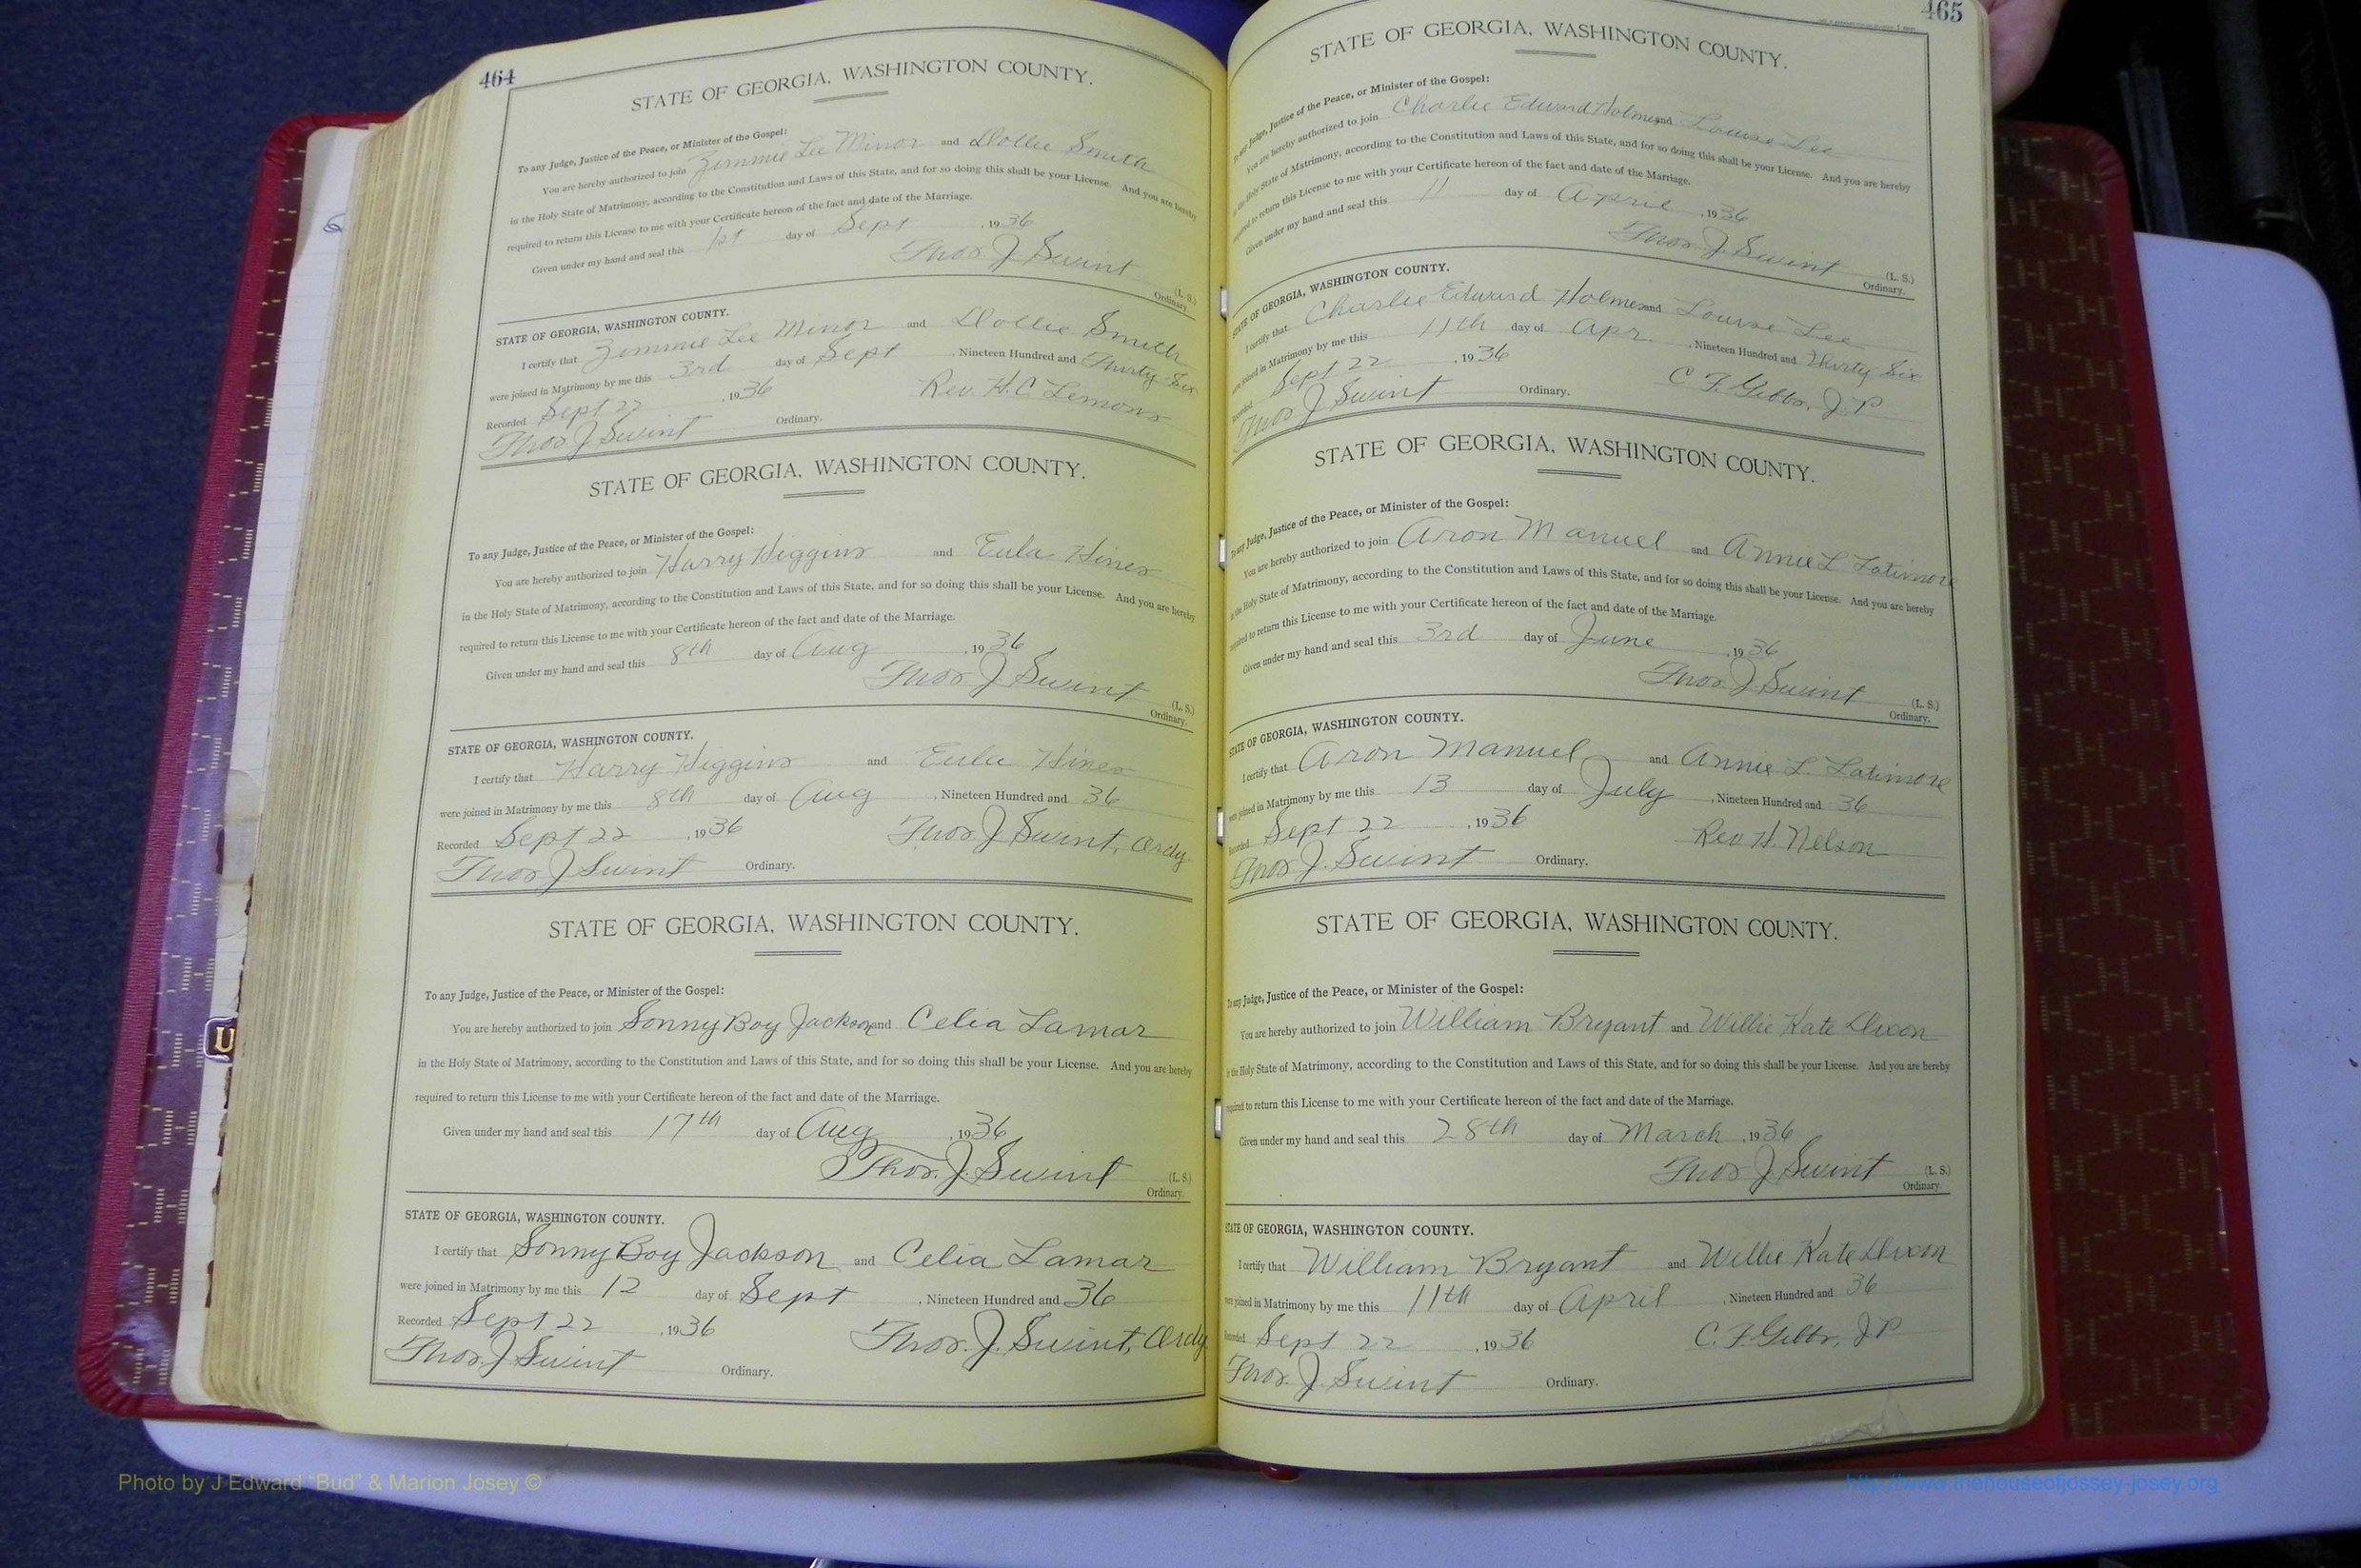 464
STATE OF GEORGIA, WASHINGTON COUNTY.
To any Judge, Justice of the Peace, or Minister of the Gospel:
You are hereby authorized to join Zimmie Lee Minor and Dollie Smith
in the Holy State of Matrimony, according to the Constitution and Laws of this State, and for so doing this shall be your License. And you are hereby
required to return this License to me with your Certificate hereon of the fact and date of the Marriage.
Given under my hand and seal this 1st day of Sept , 1936
Thos. J. Swint (L. S.)
Ordinary.
STATE OF GEORGIA, WASHINGTON COUNTY.
I certify that Zimmie Lee Minor and Dollie Smith
were joined in Matrimony by me this 3rd day of Sept , Nineteen Hundred and Thirty-Six
Recorded Sept 22 , 1936 Rev. H. C. Lemons
Thos. J Swint Ordinary.
STATE OF GEORGIA, WASHINGTON COUNTY.
To any Judge, Justice of the Peace, or Minister of the Gospel:
You are hereby authorized to join Harry Higgins and Eula Hines
in the Holy State of Matrimony, according to the Constitution and Laws of this State, and for so doing this shall be your License. And you are hereby
required to return this License to me with your Certificate hereon of the fact and date of the Marriage.
Given under my hand and seal this 8th day of Aug , 1936
Thos J Swint (L. S.)
Ordinary.
STATE OF GEORGIA, WASHINGTON COUNTY.
I certify that Harry Higgins and Eula Hines
were joined in Matrimony by me this 8th day of Aug , Nineteen Hundred and 36
Recorded Sept 22 , 1936 Thos. J Swint, Ordy.
Thos J Swint Ordinary.
STATE OF GEORGIA, WASHINGTON COUNTY.
To any Judge, Justice of the Peace, or Minister of the Gospel:
You are hereby authorized to join Sonny Boy Jackson and Celia Lamar
in the Holy State of Matrimony, according to the Constitution and Laws of this State, and for so doing this shall be your License. And you are hereby
required to return this License to me with your Certificate hereon of the fact and date of the Marriage.
Given under my hand and seal this 17th day of Aug , 1936
Thos. J. Swint (L. S.)
Ordinary.
STATE OF GEORGIA, WASHINGTON COUNTY.
I certify that Sonny Boy Jackson and Celia Lamar
were joined in Matrimony by me this 12 day of Sept , Nineteen Hundred and 36
Recorded Sept 22 , 1936 Thos. J. Swint, Ordy.
Thos. J Swint Ordinary.
465
STATE OF GEORGIA, WASHINGTON COUNTY.
To any Judge, Justice of the Peace, or Minister of the Gospel:
You are hereby authorized to join Charlie Edward Holmes and Louise Lee
in the Holy State of Matrimony, according to the Constitution and Laws of this State, and for so doing this shall be your License. And you are hereby
required to return this License to me with your Certificate hereon of the fact and date of the Marriage.
Given under my hand and seal this 11 day of April , 1936
Thos. J. Swint (L. S.)
Ordinary.
STATE OF GEORGIA, WASHINGTON COUNTY.
I certify that Charlie Edward Holmes and Louise Lee
were joined in Matrimony by me this 11th day of Apr. , Nineteen Hundred and Thirty Six
Recorded Sept 22 , 1936 C. F. Gibbs, J. P
Thos J Swint Ordinary.
STATE OF GEORGIA, WASHINGTON COUNTY.
To any Judge, Justice of the Peace, or Minister of the Gospel:
You are hereby authorized to join Aron Manuel and Annie L Latimore
in the Holy State of Matrimony, according to the Constitution and Laws of this State, and for so doing this shall be your License. And you are hereby
required to return this License to me with your Certificate hereon of the fact and date of the Marriage.
Given under my hand and seal this 3rd day of June , 1936
Thos. J Swint (L. S.)
Ordinary.
STATE OF GEORGIA, WASHINGTON COUNTY.
I certify that Aron Manuel and Annie L. Latimore
were joined in Matrimony by me this 13 day of July , Nineteen Hundred and 36
Recorded Sept 22 , 1936 Rev H. Nelson
Thos. J. Swint Ordinary.
STATE OF GEORGIA, WASHINGTON COUNTY.
To any Judge, Justice of the Peace, or Minister of the Gospel:
You are hereby authorized to join William Bryant and Willie Kate Dixon
in the Holy State of Matrimony, according to the Constitution and Laws of this State, and for so doing this shall be your License. And you are hereby
required to return this License to me with your Certificate hereon of the fact and date of the Marriage.
Given under my hand and seal this 28th day of March , 1936
Thos J. Swint (L. S.)
Ordinary.
STATE OF GEORGIA, WASHINGTON COUNTY.
I certify that William Bryant and Willie Kate Dixon
were joined in Matrimony by me this 11th day of April , Nineteen Hundred and 36
Recorded Sept 22 , 1936 C. F. Gibbs, J P
Thos. J. Swint Ordinary.
U
Photo by J Edward “Bud” & Marion Josey ©
http://www.thehouseofjossey-josey.org